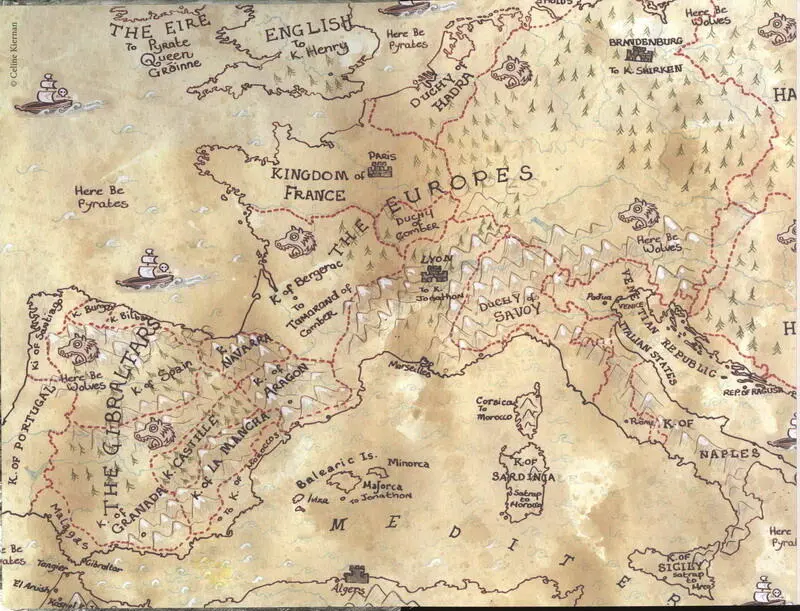 © Celine Kiernan
THE EIRE
To Pyrate
Queen
Gráinne
ENGLISH
To
K. Henry
Here Be
Pyrates
DUCHY of
HADRA
Here Be
Wolves
BRANDENBURG
To K. SHIRKEN
HA
PARIS
KINGDOM of
FRANCE
Here Be
Pyrates
THE EUROPES
DUCHY
of
COMBER
K. of Bergerac
To
Tamarand of
Comber
LYON
To K.
Jonathon
DUCHY of
SAVOY
Here Be
Wolves
Padua
VENICE
VENETIAN REPUBLIC
ITALIAN STATES
REP. OF RAGUSA
H
Marseilles
Ki of Santiago
K. Burgos
K. Bilbao
K. of
NAVARRA
K. of Spain
K. of
ARAGON
Here Be
Wolves
THE GIBRALTARS
K. OF PORTUGAL
K. CASTILLE
K. of LA MANCHA
K. of
GRANADA
To K. of
Malagas
Gibraltar
Tangier
El Araish
Here Be
Pyrates
Corsica
To
Morocco
K. OF
SARDINIA
Satrap
to
Morocco
Balearic Is.
Minorca
Majorca
To Jonathon
Ibiza
Rome
K. OF
NAPLES
MEDITER
K. OF
SICILY
satrap
to
Algers
Here
Pyrat